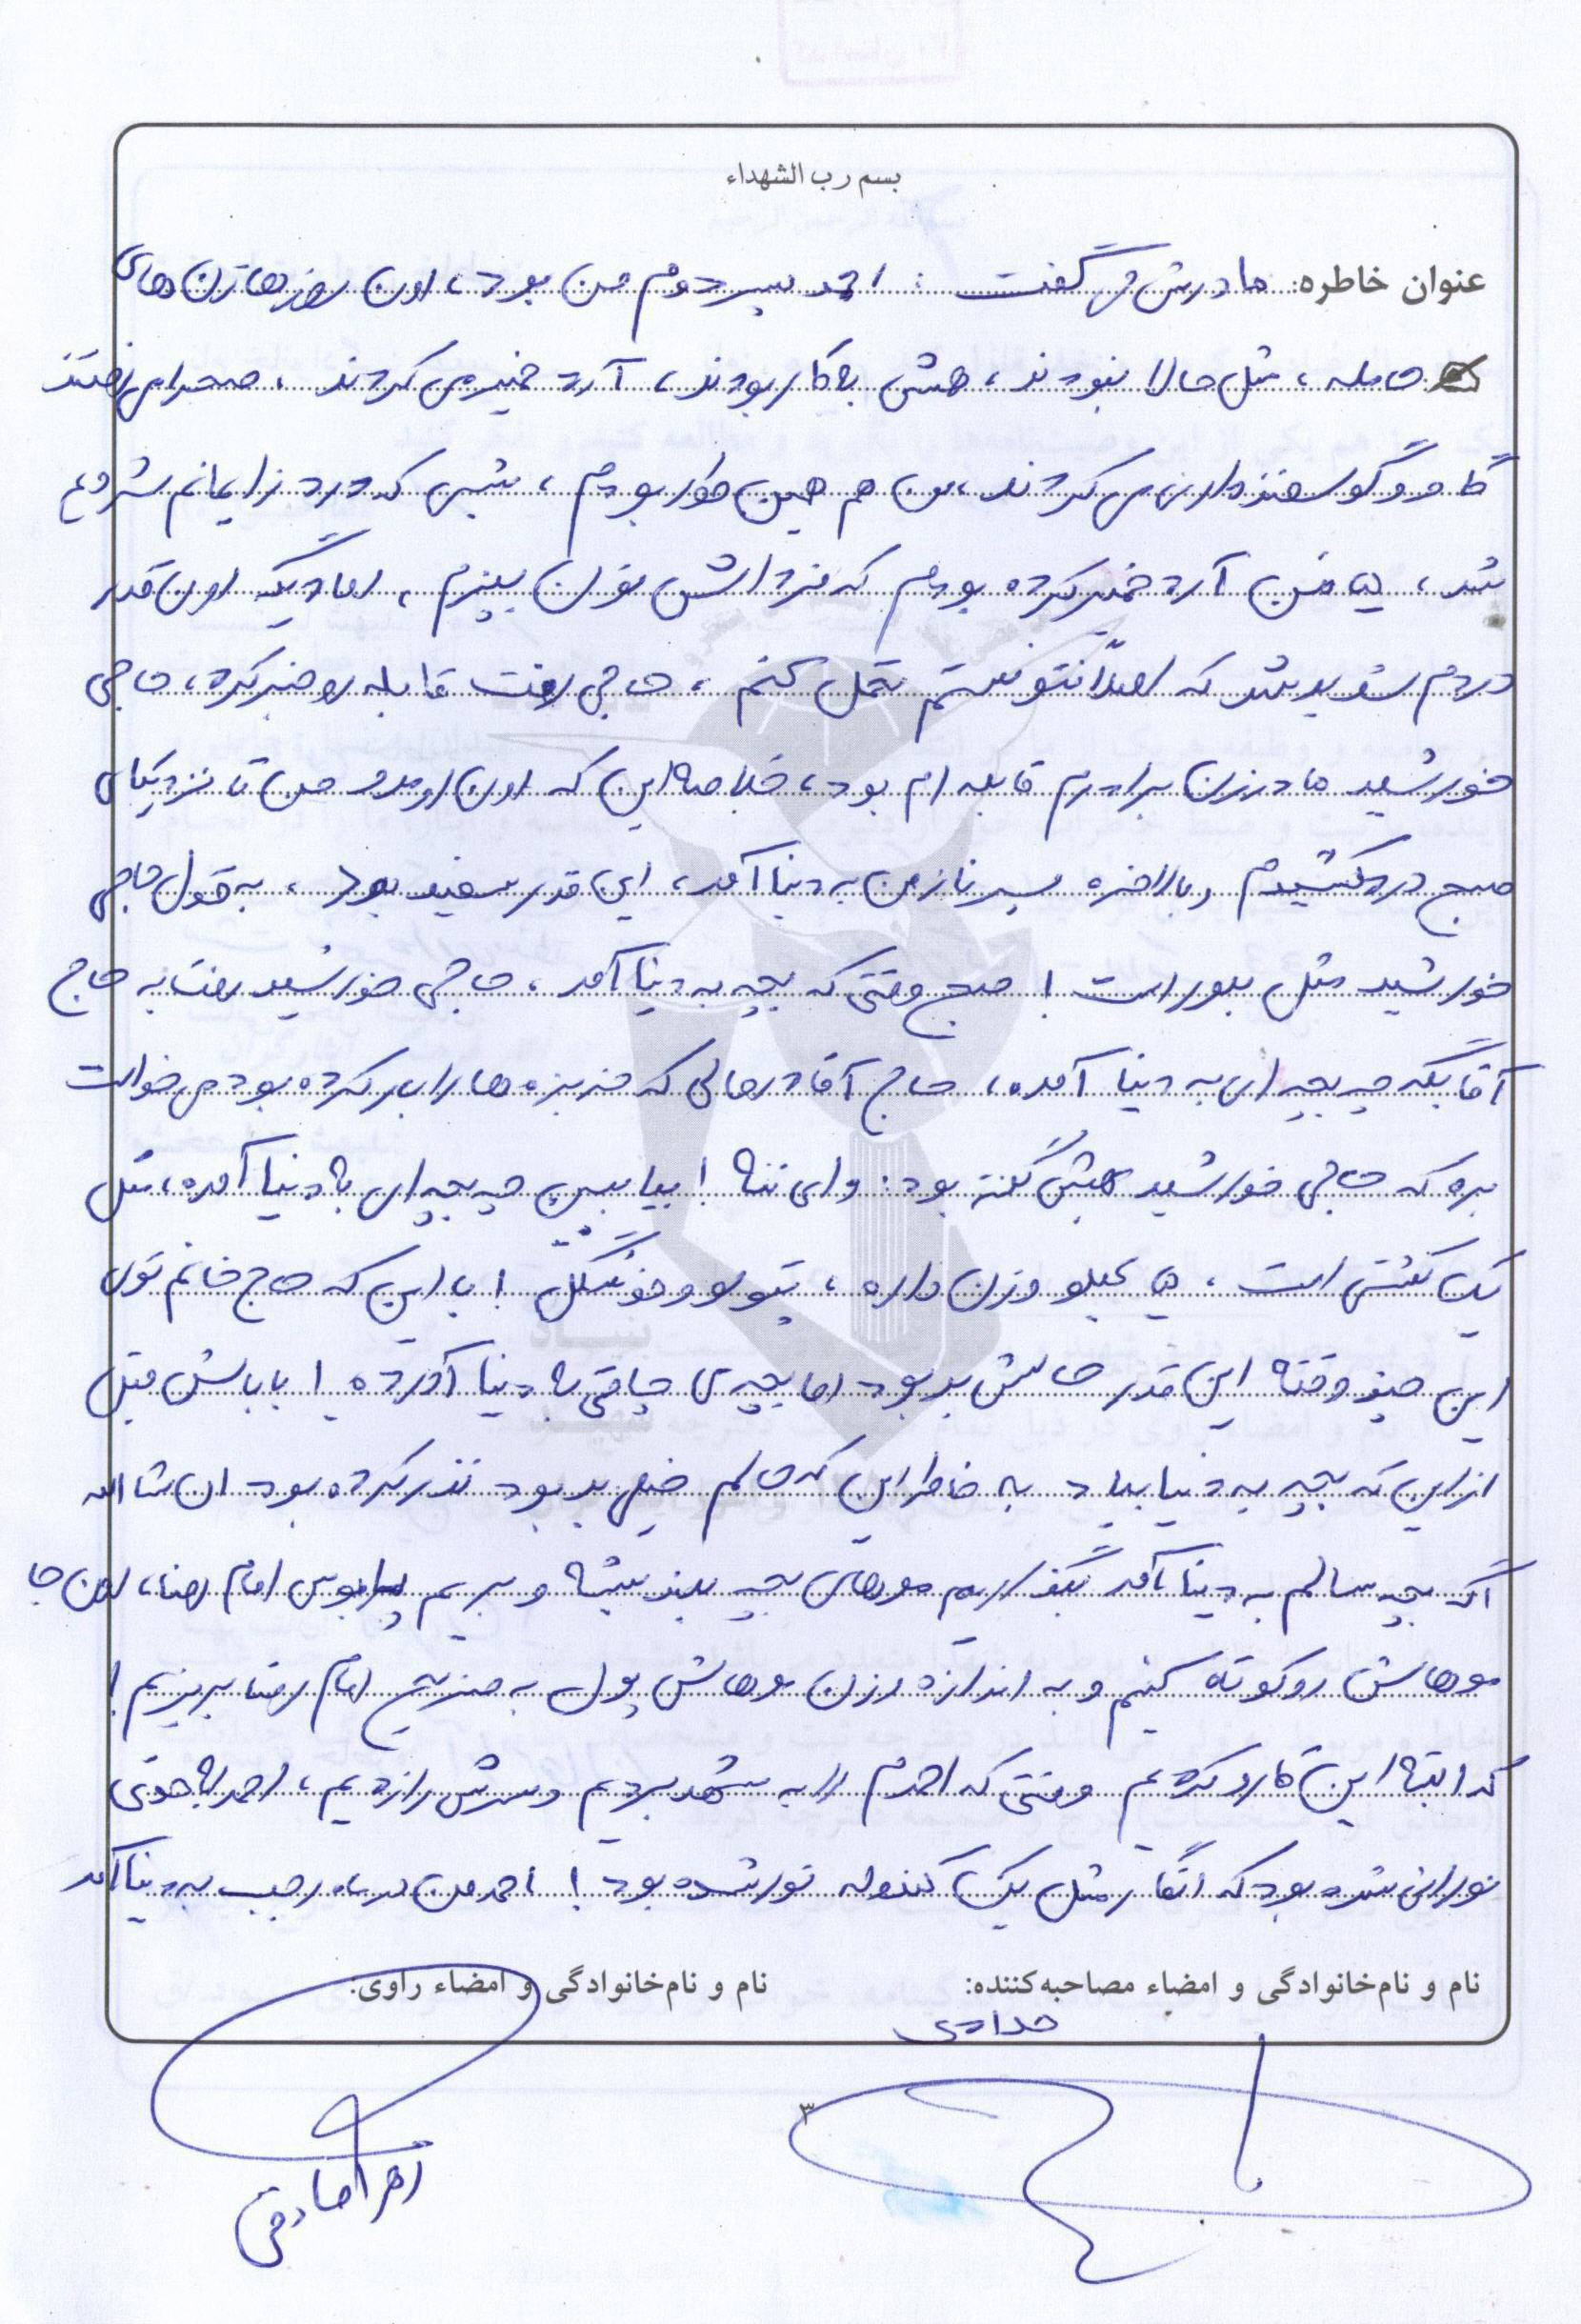 بسم رب الشهداء
عنوان خاطره: مادرش می گفت : احمد پسر دوم من بود، اون روزها زن های
حامله، مثل حالا نبودند، همش به کار بودند، آرد خمیر می کردند، صحرا می رفتند
گاو و گوسفندداری می کردند، من هم همین طور بودم، شبی که درد زایمانم شروع
شد، من آرد خمیر کرده بودم که فرداش نون بپزم، اما دیگه اون قدر
دردم شدید شد که اصلاً نتونستم تحمل کنم، حاجی رفت قابله رو خبر کرد، حاجی
خورشید مادرزن برادرم قابله ام بود، خلاصه این که اون اومد و من تا نزدیکای
صبح درد کشیدم و بالاخره پسر نازمن به دنیا آمد، این قدر سفید بود، به قول حاجی
خورشید مثل بلور است! صبح وقتی که بچه به دنیا آمد، حاجی خورشید رفت به حاج
آقا بگه چه بچه ای به دنیا آمده، حاج آقا درحالی که خربزه ها را بار کرده بود می خواست
بره که حاجی خورشید بهش گفته بود: وای ننه! بیا ببین چه بچه ای به دنیا آمده، مثل
یک کشتی است، ۵ کیلو وزن داره، تپولو و خوشگل! با این که حاج خانم توی
این چند وقته این قدر حالش بد بود اما بچه ی چاقی به دنیا آورده! باباش قبل
از این که بچه به دنیا بیاد به خاطر این که حالم خیلی بد بود نذر کرده بود ان شاالله
اگه بچه سالم به دنیا آمد بگذاریم موهای بچه بلند بشه و بریم پابوس امام رضا، اون جا
موهاش رو کوتاه کنیم و به اندازه وزن موهاش پول به ضریح امام رضا بریزیم!
که البته این کارو کردیم وقتی که احمدم را به مشهد بردیم و سرش را زدیم، احمد به حدی
نورانی شده بود که انگار مثل یک گندوله نور شده بود! احمد من در ماه رجب به دنیا آمد
نام و نام‌خانوادگی و امضاء مصاحبه‌کننده:
نام و نام‌خانوادگی و امضاء راوی:
حدادی
زهرا صادقی
۳